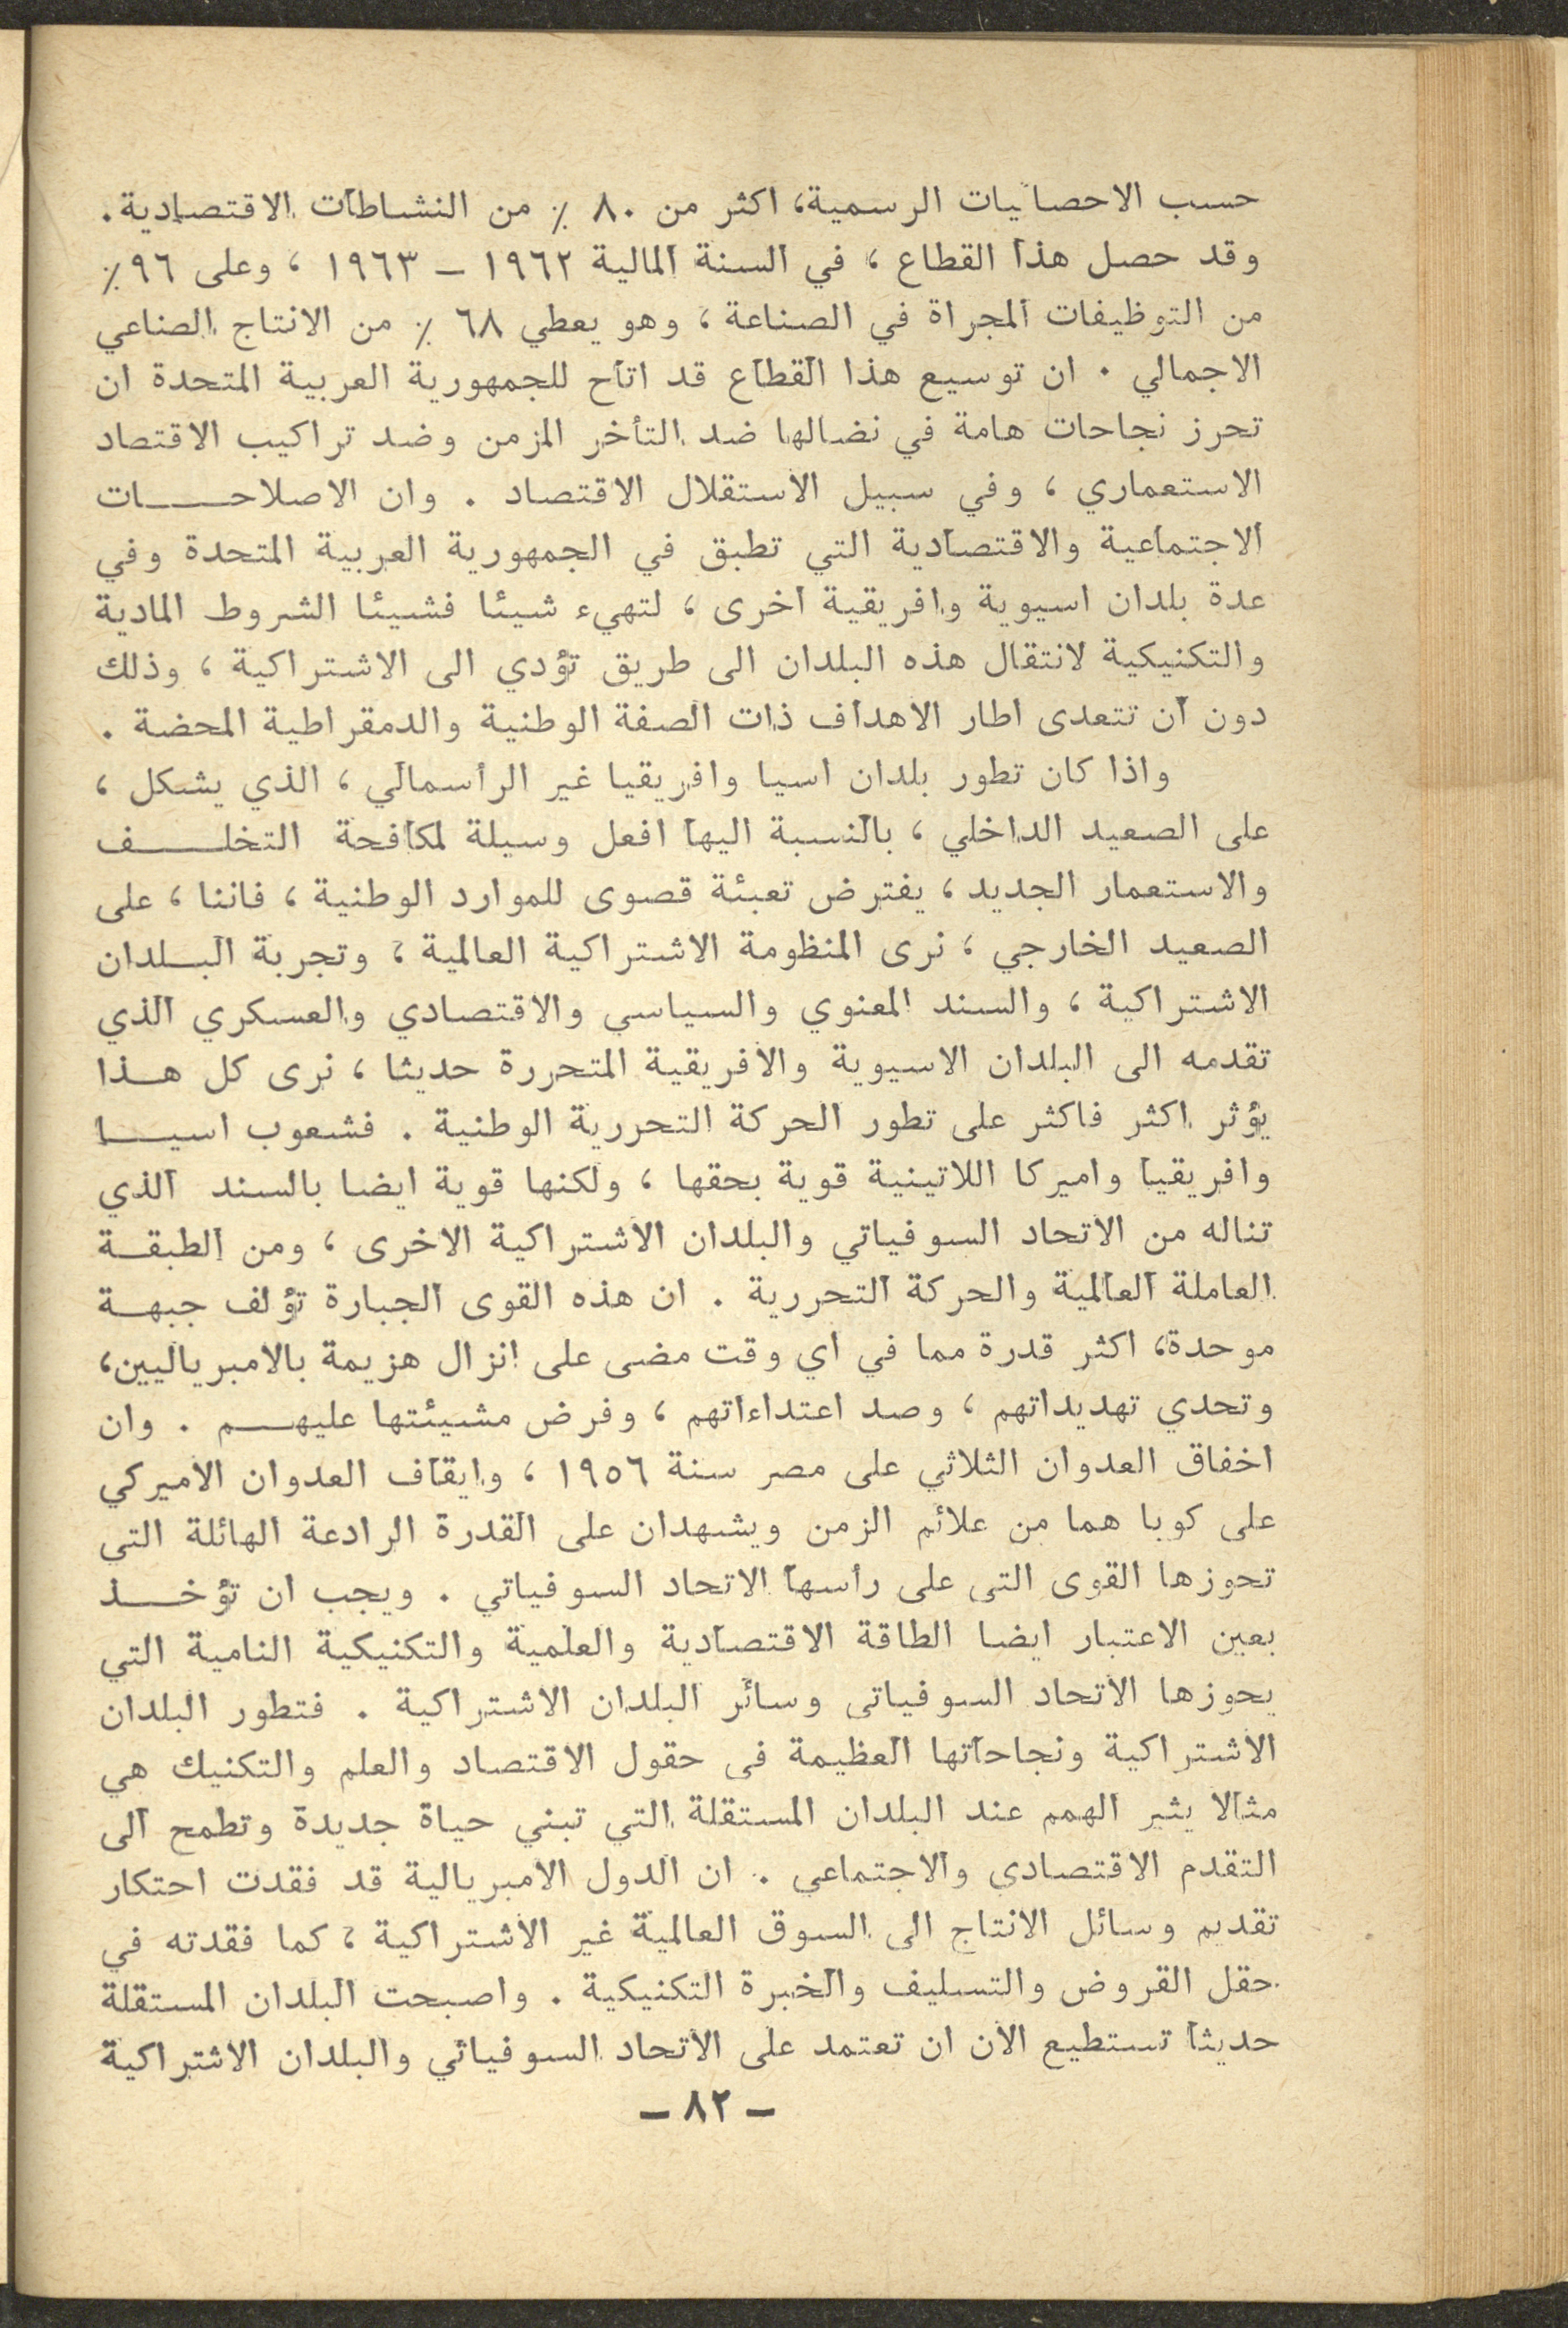 حسب الاحصائيات الرسمية، اكثر من ٨٠ ٪ من النشاطات الاقتصادية.
وقد حصل هذا القطاع ، في السنة المالية ١٩٦٢ – ١٩٦٣ ، وعلى ٩٦٪
من التوظيفات المجراة في الصناعة ، وهو يعطي ٦٨ ٪ من الانتاج الصناعي
الاجمالي . ان توسيع هذا القطاع قد اتاح للجمهورية العربية المتحدة ان
تحرز نجاحات هامة في نضالها ضد التأخر المزمن وضد تراكيب الاقتصاد
الاستعماري ، وفي سبيل الاستقلال الاقتصاد . وان الاصلاحـــــات
الاجتماعية والاقتصادية التي تطبق في الجمهورية العربية المتحدة وفي
عدة بلدان اسيوية وافريقية اخرى ، لتهيء شيئا فشيئا الشروط المادية
والتكنيكية لانتقال هذه البلدان الى طريق تؤدي الى الاشتراكية ، وذلك
دون ان تتعدى اطار الاهداف ذات الصفة الوطنية والدمقراطية المحضة .
واذا كان تطور بلدان اسيا وافريقيا غير الرأسمالي ، الذي يشكل ،
على الصعيد الداخلي ، بالنسبة اليها افعل وسيلة لمكافحة التخلـــــف
والاستعمار الجديد ، يفترض تعبئة قصوى للموارد الوطنية ، فاننا ، على
الصعيد الخارجي ، نرى المنظومة الاشتراكية العالمية ، وتجربة البـــلدان
الاشتراكية ، والسند المعنوي والسياسي والاقتصادي والعسكري الذي
تقدمه الى البلدان الاسيوية والافريقية المتحررة حديثا ، نرى كل هــذا
يؤثر اكثر فاكثر على تطور الحركة التحررية الوطنية . فشعوب اسيـــا
وافريقيا واميركا اللاتينية قوية بحقها ، ولكنها قوية ايضا بالسند الذي
تناله من الاتحاد السوفياتي والبلدان الاشتراكية الاخرى ، ومن الطبقــة
العاملة العالمية والحركة التحررية . ان هذه القوى الجبارة تؤلف جبهــة
موحدة، اكثر قدرة مما في اي وقت مضى على انزال هزيمة بالامبرياليين،
وتحدي تهديداتهم ، وصد اعتداءاتهم ، وفرض مشيئتها عليهـــم . وان
اخفاق العدوان الثلاثي على مصر سنة ١٩٥٦ ، وايقاف العدوان الاميركي
على كوبا هما من علائم الزمن ويشهدان على القدرة الرادعة الهائلة التي
تحوزها القوى التي على رأسها الاتحاد السوفياتي . ويجب ان تؤخـــــذ
بعين الاعتبار ايضا الطاقة الاقتصادية والعلمية والتكنيكية النامية التي
يحوزها الاتحاد السوفياتي وسائر البلدان الاشتراكية . فتطور البلدان
الاشتراكية ونجاحاتها العظيمة في حقول الاقتصاد والعلم والتكنيك هي
مثالا يثير الهمم عند البلدان المستقلة التي تبني حياة جديدة وتطمح الى
التقدم الاقتصادي والاجتماعي . ان الدول الامبريالية قد فقدت احتكار
تقديم وسائل الانتاج الى السوق العالمية غير الاشتراكية ، كما فقدته في
حقل القروض والتسليف والخبرة التكنيكية . واصبحت البلدان المستقلة
حديثا تستطيع الان ان تعتمد على الاتحاد السوفياتي والبلدان الاشتراكية
– ٨٢ –